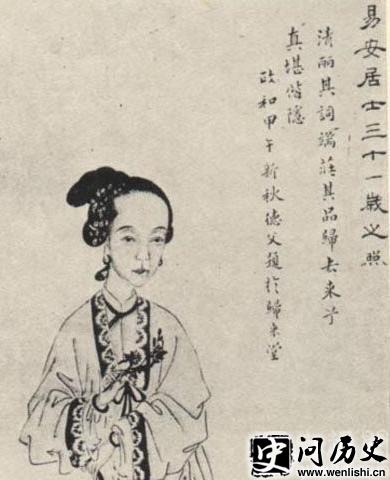 易安居士三十一歲之照
清麗其詞端莊其品歸去来乎
真堪偕隱
政和甲午新秋德父題於歸来堂
史问历史
www.wenlishi.cn